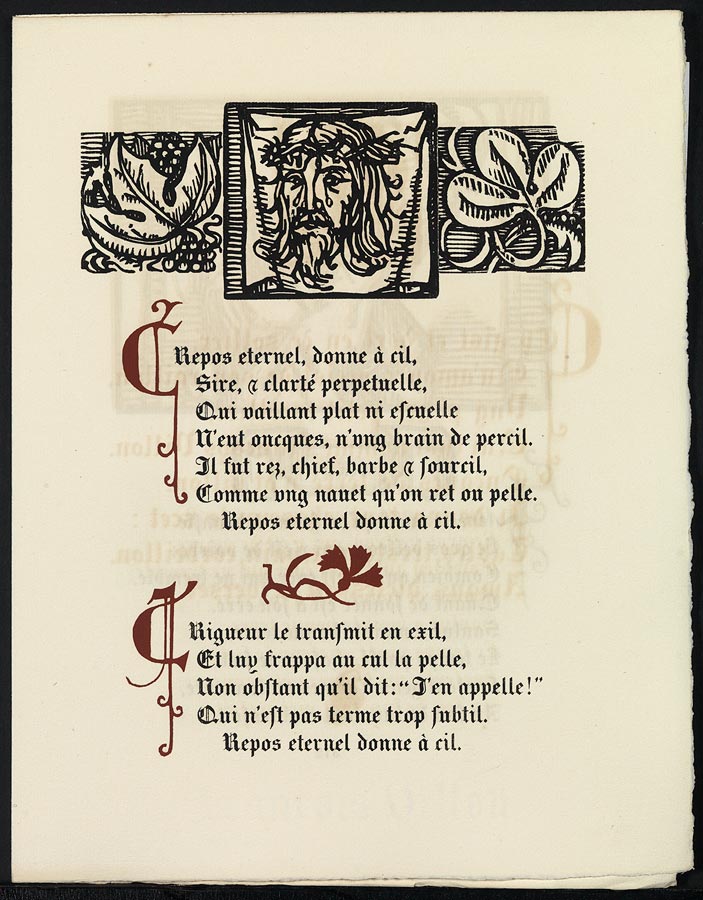 Repos eternel, donne à cil,
Sire, ⁊ clarté perpetuelle,
Qui vaillant plat ni eſcuelle
N'eut oncques, n'vng brain de percil.
Il fut rez, chief, barbe ⁊ ſourcil,
Comme vng nauet qu'on ret ou pelle.
Repos eternel donne à cil.
Rigueur le tranſmit en exil,
Et luy frappa au cul la pelle,
Non obſtant qu'il dit: "J'en appelle!"
Qui n'eſt pas terme trop ſubtil.
Repos eternel donne à cil.